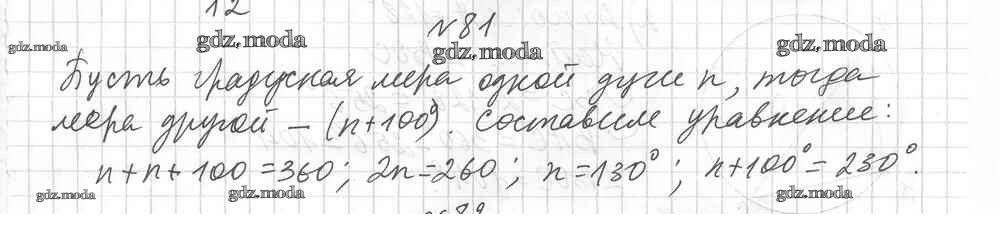 12
№81
gdz.moda gdz.moda gdz.moda gdz.moda
Пусть градусная мера одной дуги n, тогда
мера другой – (n+100°). Составим уравнение:
n+n+100=360; 2n=260; n=130°; n+100°=230°.
gdz.moda gdz.moda gdz.moda